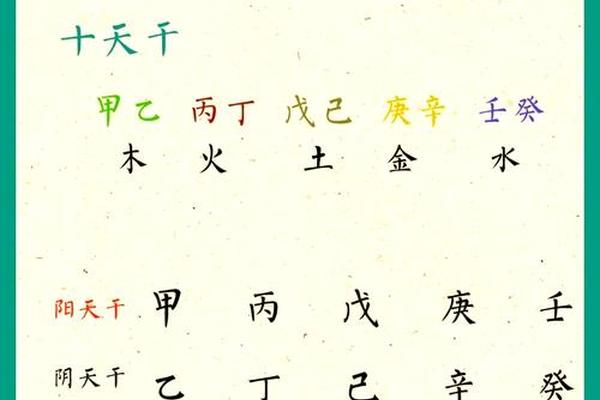 十天干
甲乙 丙丁 戊己 庚辛 壬癸
木 火 土 金 水
阳天干 甲 丙 戊 庚 壬
阴天干 乙 丁 己 辛 癸